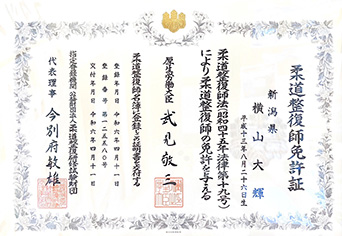 柔道整復師免許証
新潟県
横山大輝
平成十三年八月二十六日生
柔道整復師法(昭和四十五年法律第十九号)
により柔道整復師の免許を与える
厚生労働大臣 武見敬三
柔道整復師名簿に登録した証明書を付する
登録年月日 令和六年四月十一日
登録番号 第一二五五八〇号
交付年月日 令和六年四月十一日
指定登録機関 公益財団法人柔道整復研修試験財団
代表理事 今別府敏雄